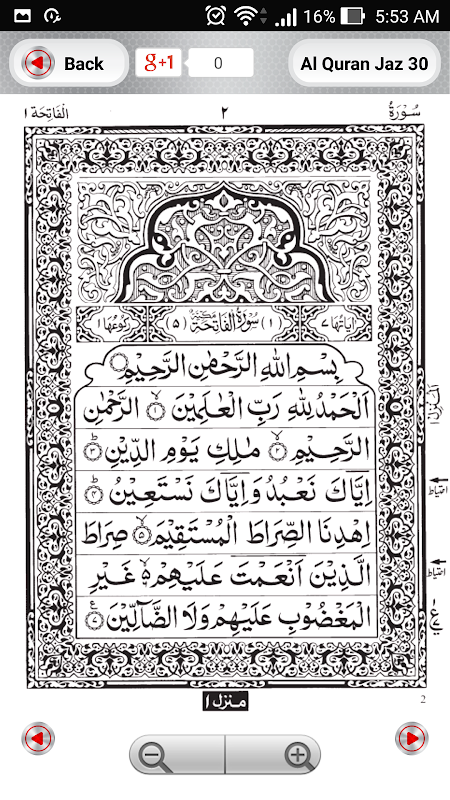 16% 5:53 AM
Back g+1 0 Al Quran Jaz 30
سُوْرَةُ ٢ اَلْفَاتِحَة ١
اٰيَاتُهَا ٧ (١) سُوْرَةُ الْفَاتِحَةِ مَكِّيَّةٌ (٥) رُكُوْعُهَا ١
بِسْمِ اللّٰهِ الرَّحْمٰنِ الرَّحِيْمِ
اَلْحَمْدُ لِلّٰهِ رَبِّ الْعٰلَمِيْنَ ۙ﴿١﴾ الرَّحْمٰنِ
الرَّحِيْمِ ۙ﴿٢﴾ مٰلِكِ يَوْمِ الدِّيْنِ ؕ﴿٣﴾
اِيَّاكَ نَعْبُدُ وَاِيَّاكَ نَسْتَعِيْنُ ؕ﴿٤﴾
اِهْدِنَا الصِّرَاطَ الْمُسْتَقِيْمَ ۙ﴿٥﴾ صِرَاطَ
الَّذِيْنَ اَنْعَمْتَ عَلَيْهِمْ ۙ۬ غَيْرِ
الْمَغْضُوْبِ عَلَيْهِمْ وَلَا الضَّآلِّيْنَ ﴿٧﴾
المنزل ١
احتياط
احتياط
ع
منزل ١
2